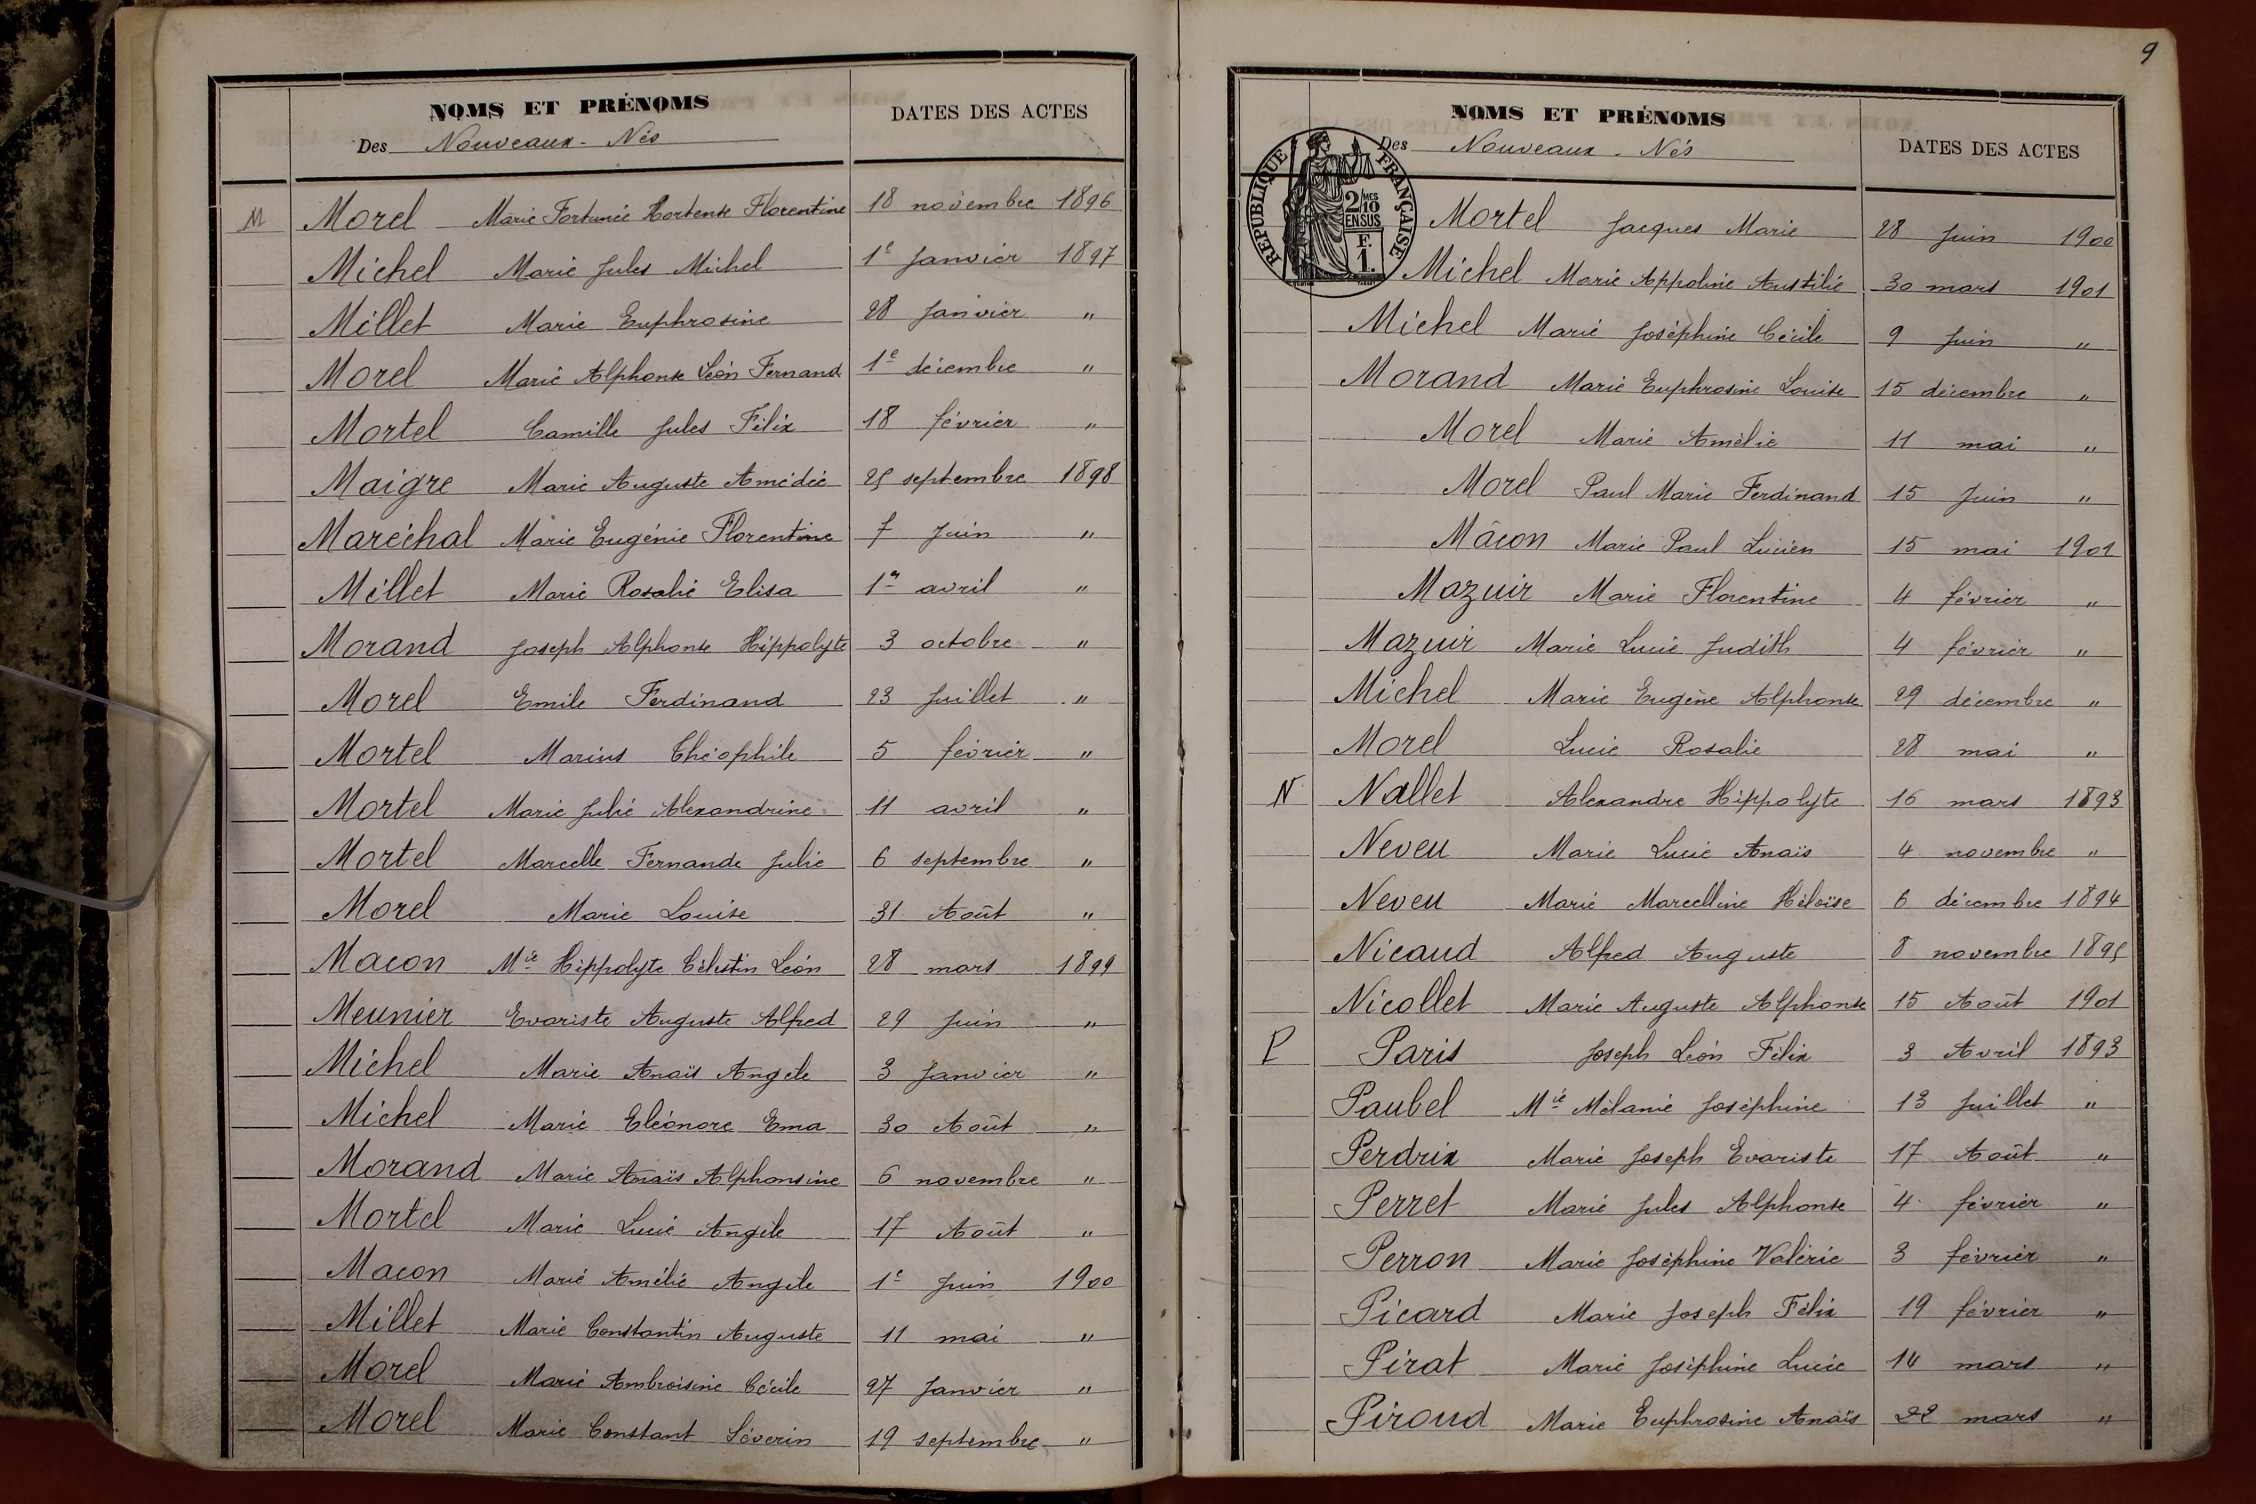 NOMS ET PRÉNOMS
DATES DES ACTES
Des Nouveaux-Nés
M Morel Marie Fortunée Hortense Florentine 18 novembre 1896
Michel Marie Jules Michel 1e Janvier 1897
Millet Marie Euphrosine 28 Janvier "
Morel Marie Alphonse Léon Fernand 1e décembre "
Mortel Camille Jules Félix 18 février "
Maigre Marie Auguste Amédée 25 septembre 1898
Maréchal Marie Eugénie Florentine 7 Juin "
Millet Marie Rosalie Elisa 1er avril "
Morand Joseph Alphonse Hippolyte 3 octobre "
Morel Emile Ferdinand 23 Juillet "
Mortel Marius Théophile 5 février "
Mortel Marie Julie Alexandrine 11 avril "
Mortel Marcelle Fernande Julie 6 septembre "
Morel Marie Louise 31 Août "
Macon Mie Hippolyte Célestin Léon 28 mars 1899
Meunier Evariste Auguste Alfred 29 Juin "
Michel Marie Anaïs Angele 3 Janvier "
Michel Marie Eléonore Ema 30 Août "
Morand Marie Anaïs Alphonsine 6 novembre "
Mortel Marie Lucie Angèle 17 Août "
Macon Marie Amélie Angele 1e Juin 1900
Millet Marie Constantin Auguste 11 mai "
Morel Marie Ambroisine Cécile 27 Janvier "
Morel Marie Constant Séverin 19 septembre "
9
NOMS ET PRÉNOMS
DATES DES ACTES
Des Nouveaux-Nés
RÉPUBLIQUE FRANÇAISE
2/MES
10
EN SUS
F.
1.
Mortel Jacques Marie 28 Juin 1900
Michel Marie Appoline Austilie 30 mars 1901
Michel Marie Joséphine Cécile 9 Juin "
Morand Marie Euphrosine Louise 15 décembre "
Morel Marie Amélie 11 mai "
Morel Paul Marie Ferdinand 15 Juin "
Mâcon Marie Paul Lucien 15 mai 1901
Mazuir Marie Florentine 4 février "
Mazuir Marie Lucie Judith 4 février "
Michel Marie Eugène Alphonse 29 décembre "
Morel Lucie Rosalie 28 mai "
N Nallet Alexandre Hippolyte 16 mars 1893
Neveu Marie Lucie Anaïs 4 novembre "
Neveu Marie Marcelline Héloïse 6 décembre 1894
Nicaud Alfred Auguste 8 novembre 1895
Nicollet Marie Auguste Alphonse 15 Août 1901
P Paris Joseph Léon Félix 3 Avril 1893
Paubel Mie Mélanie Joséphine 13 Juillet "
Perdrix Marie Joseph Evariste 17 Août "
Perret Marie Jules Alphonse 4 février "
Perron Marie Joséphine Valérie 3 février "
Picard Marie Joseph Félix 19 février "
Pirat Marie Joséphine Lucie 14 mars "
Piroud Marie Euphrosine Anaïs 22 mars "